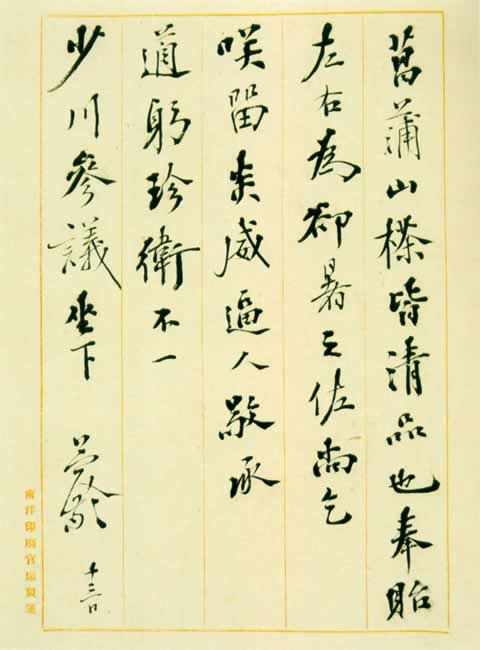 菖蒲山皆清品也奉貽
左右為卻暑之佐尚乞
咲留炎威逼人敬承
道躬珍衛不一
少川參議坐下
十三日
南洋印刷官廠製箋